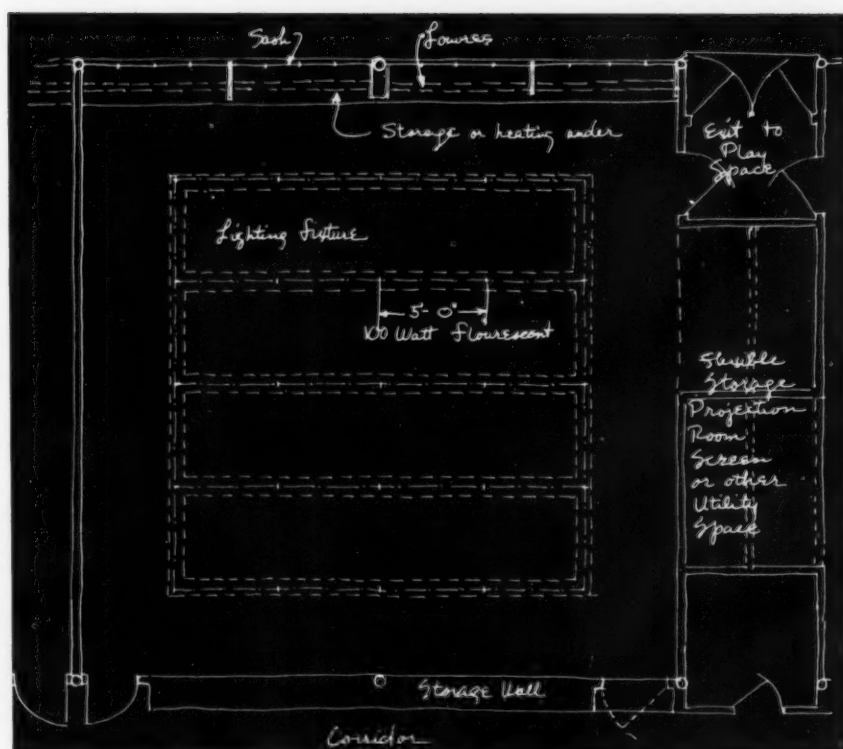 Sash
Louvres
Storage or heating under
Exit to
Play
Space
Lighting fixture
5'-0"
100 Watt flourescent
Flexible
Storage
Projection
Room
Screen
or other
Utility
Space
Storage Wall
Corridor